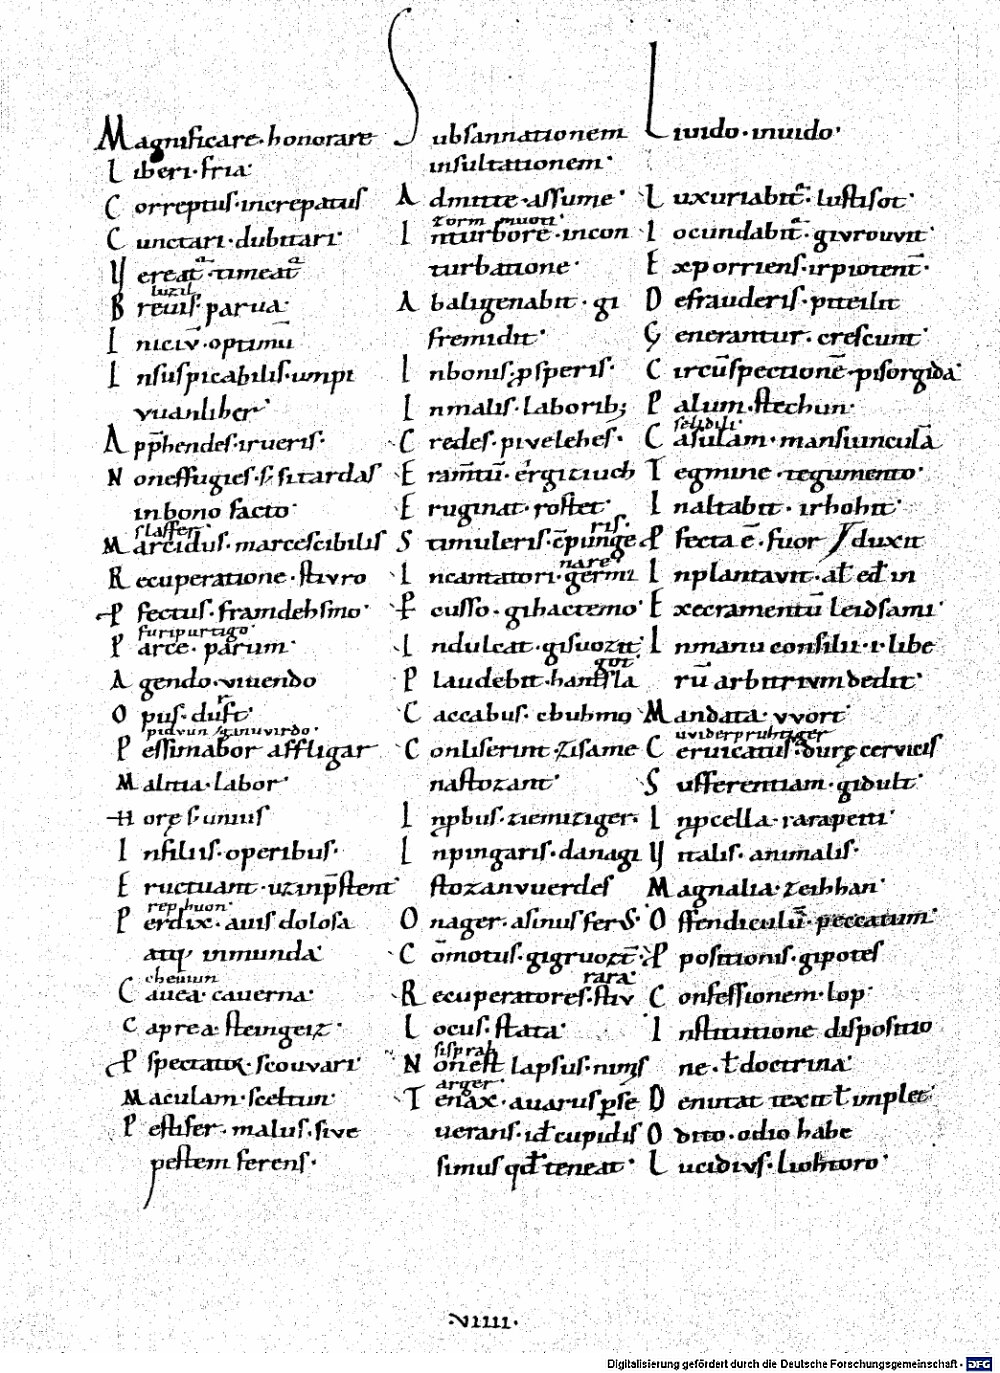 Magnificare· honorare
Liberi· fria·
Correptus· increpatus
Cunctari· dubitari·
Vereat· timeat
luzil
Brevis· parua·
Iniciū· optimū
Insuspicabilis· unpi
vuanliber·
App̄hendes· irueris·
Non effugies· si tardas
in bono facto·
slaffer·
Marcidus· marcescibilis
Recuperatione· stivro
Pfectus· framdehsmo·
furipurtigo·
Parce· parum·
Agendo· viuendo
Opus· durft·
pidvun
Pessimabor affligar
Malitia· labor·
Horę unius
In filiis· operibus·
Eructuant· uzinp̄stent·
rephuon·
Perdix· auis dolosa
atq; inmunda·
cheuiun
Cauea· cauerna·
Caprea· steingeiz·
Pspectatix· scouvari·
Maculam· sceltun·
Pestifer· malus· sive
pestem ferens·
Subsannationem
insultationem·
Admitte· assume·
zorm muoti·
In turbore· incon
turbatione·
Abaligenabit· gi
fremidit·
In bonis· psperis·
In malis· laborib;
Credes· pivelehes·
Eram̄tū· ergiziuch
Eruginat· rostet·
ris·
Stimuleris· cōpunge
nare·
Incantatori· germi
Pcusso· gihactemo·
Indulcat· gisuozit·
got·
Plaudebit· hantsla
Caccabus· chuhmo
Conliserint· zisame
nastozant·
In pbus· ziemiziger·
Inpingaris· danagi
stozan vuerdes
Onager· asinus ferus·
Cōmotus· gigruozt·
rara·
Recuperatores· stiv
Locus· stata·
sisprah
Non est lapsus· nimis
arger·
Tenax· auarus pse
uerans· id cupidis
simus qd teneat·
Liuido· inuido·
Luxuriabit· lustisot·
Iocundabit· givrouvit·
Exporriens· irpiotent·
Defrauderis· piteilit
Generantur· crescunt·
Circūspectionē· pisorgida·
Palum· stechun·
selidili·
Casulam· mansiunculā
Tegmine· tegumento·
Inaltabit· irhohit·
Pfecta ē· fuor duxit
Inplantavit· al ed in
Execramentū leidsami·
In manu consilii· i· libe
rū arbitrium dedit·
Mandata· vvort·
uviderpruhtiger
Ceruicatus· durę cervicis
Sufferentiam· gidult·
In pcella· rarapeiti·
Vitalis· animalis·
Magnalia· zeihhan·
Offendiculū· peccatum·
Ppositionis· gipotes
Confessionem· lop·
Institutione dispositio
ne· t doctrina·
Denutat texit t implet·
Odito· odio habe
Lucidius· liohtoro·
·VIIII·
Digitalisierung gefördert durch die Deutsche Forschungsgemeinschaft - DFG